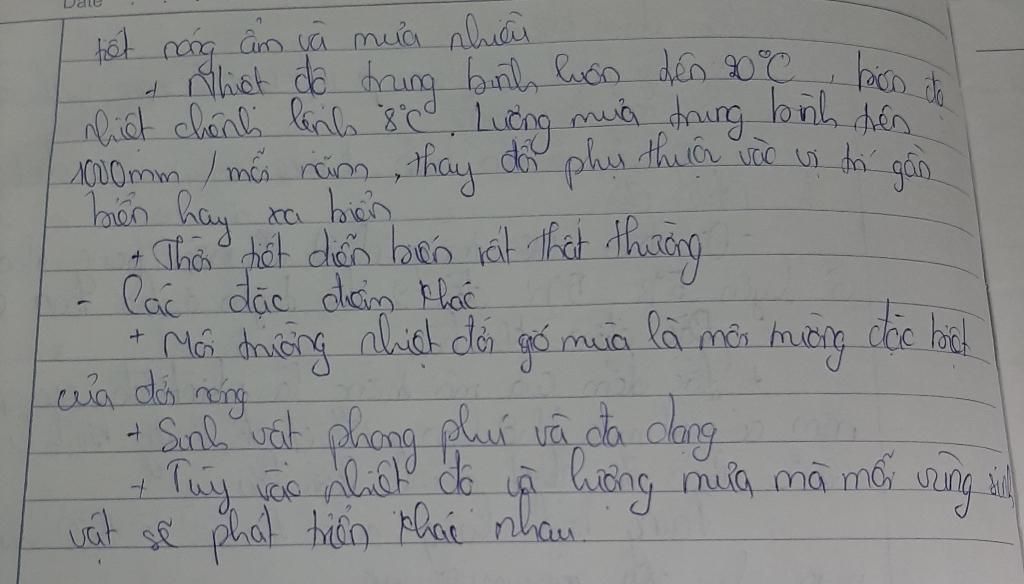 Date
tiết nóng ẩm và mưa nhiều
+ Nhiệt độ trung bình luôn đến 20°C, biên độ
nhiệt chênh lệnh 8°C. Lượng mưa trung bình đến
1000mm / mỗi năm, thay đổi phụ thuộc vào vị trí gần
biển hay xa biển
+ Thời tiết diễn biến rất thất thường
- Các đặc điểm khác
+ Môi trường nhiệt đới gió mùa là môi trường đặc biệt
của đới nóng
+ Sinh vật phong phú và đa dạng
+ Tùy vào nhiệt độ và lượng mưa mà mỗi vùng sinh
vật sẽ phát triển khác nhau.